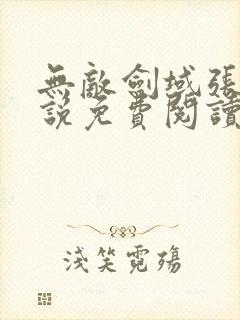 無敵劍域張
說免費閱讀
淺笑霓殤